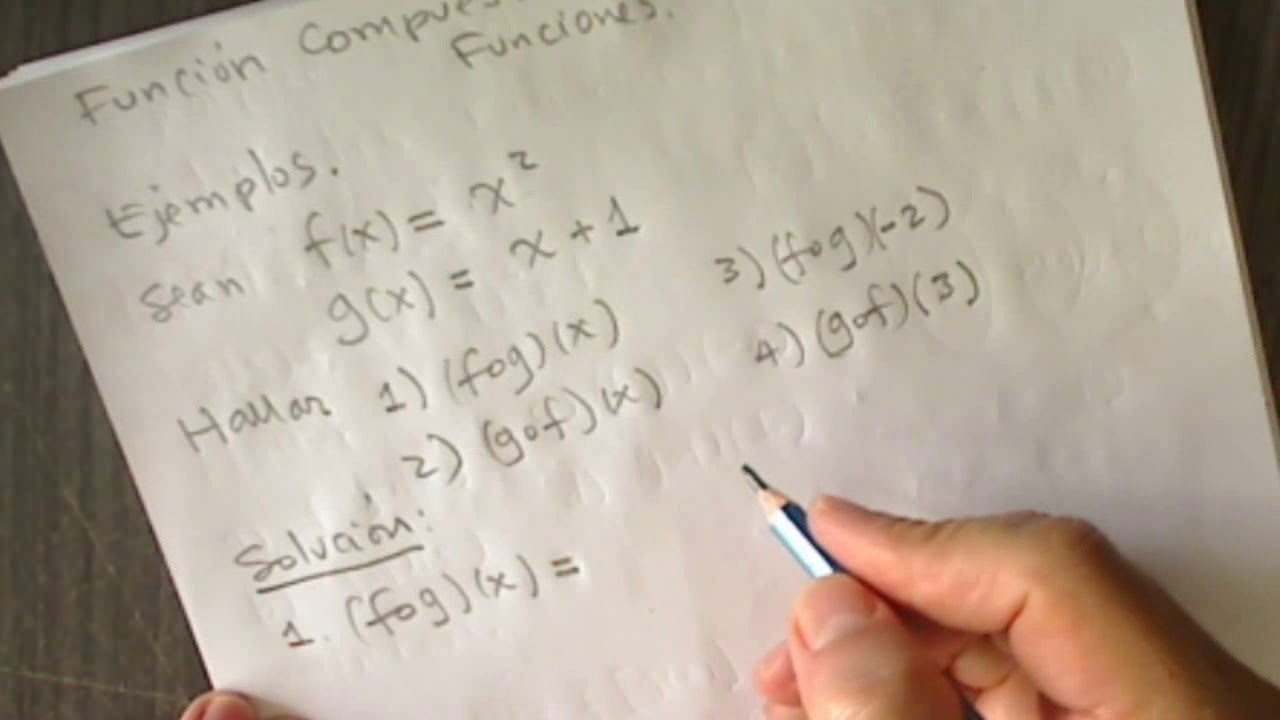 Función
Funciones.
Ejemplos.
Sean f(x) = x²
g(x) = x + 1
Hallar 1) (fog)(x)
2) (gof)(x)
3) (fog)(-2)
4) (gof)(3)
Solución:
1. (fog)(x) =